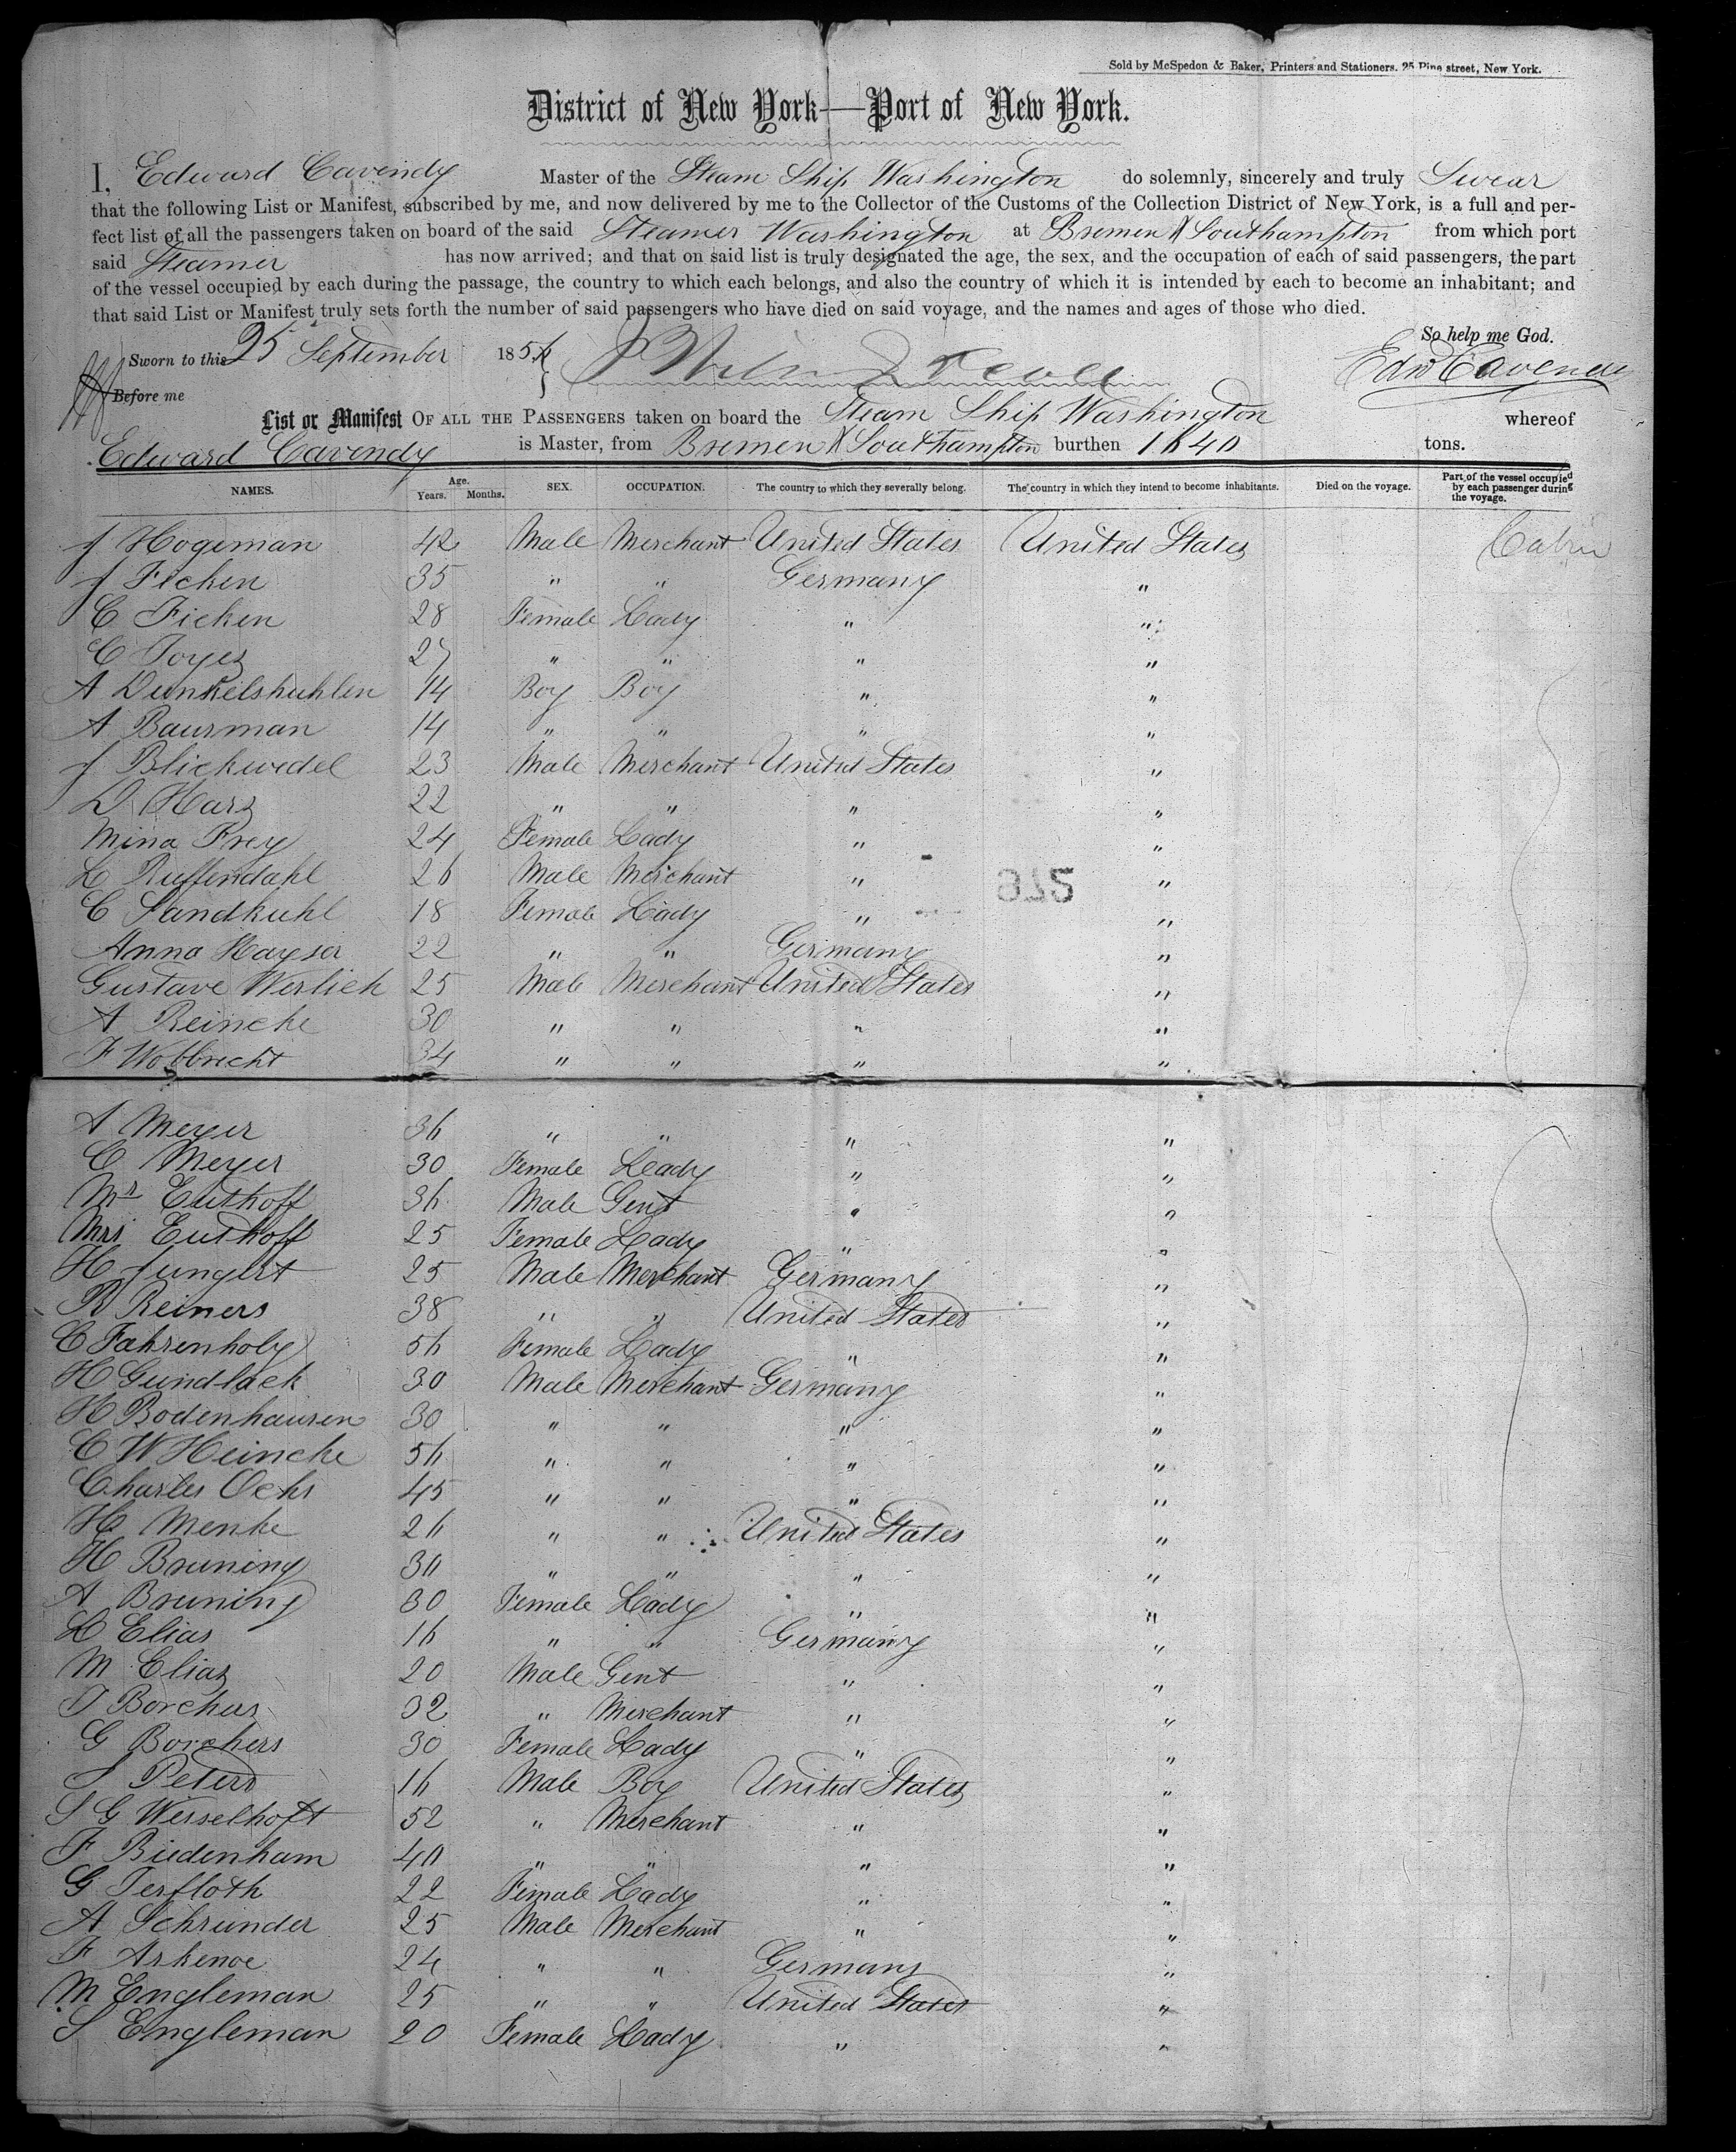 Sold by McSpedon & Baker, Printers and Stationers. 25 Pine street, New York.
District of New York—Port of New York.
I, Edward Cavendy Master of the Steam Ship Washington do solemnly, sincerely and truly Swear
that the following List or Manifest, subscribed by me, and now delivered by me to the Collector of the Customs of the Collection District of New York, is a full and per-
fect list of all the passengers taken on board of the said Steamer Washington at Bremen & Southampton from which port
said Steamer has now arrived; and that on said list is truly designated the age, the sex, and the occupation of each of said passengers, the part
of the vessel occupied by each during the passage, the country to which each belongs, and also the country of which it is intended by each to become an inhabitant; and
that said List or Manifest truly sets forth the number of said passengers who have died on said voyage, and the names and ages of those who died.
So help me God.
Sworn to this 25 September 185 Edw Cavendy
Before me
List or Manifest OF ALL THE PASSENGERS taken on board the Steam Ship Washington whereof
Edward Cavendy is Master, from Bremen & Southampton burthen 1640 tons.
NAMES. Age. Years. Months. SEX. OCCUPATION. The country to which they severally belong. The country in which they intend to become inhabitants. Died on the voyage. Part of the vessel occupied by each passenger during the voyage.
J Hogeman 42 Male Merchant United States United States Cabin
J Ficken 35 " " Germany "
C Ficken 28 Female Lady " "
C Toyes 27 " " " "
A Dunkelshuhlen 14 Boy Boy " "
A Baurman 14 " " " "
J Blickwedel 23 Male Merchant United States "
D Hars 22 " " " "
Mina Frey 24 Female Lady " "
L Ruffendahl 26 Male Merchant " "
275
C Sandkuhl 18 Female Lady " "
Anna Hayser 22 " " Germany "
Gustave Werlich 25 Male Merchant United States "
A Reincke 30 " " " "
F Wobbrecht 34 " " " "
A Meyer 36 " " " "
C Meyer 30 Female Leady " "
Mr Euthoff 36 Male Gent " "
Mrs Euthoff 25 Female Lady " "
H Jungbst 25 Male Merchant Germany "
R Reiners 38 " " United States "
C Fahrenholz 56 Female Lady " "
H Gundlach 30 Male Merchant Germany "
H Bodenhausen 30 " " " "
C W Heincke 56 " " " "
Charles Ochs 45 " " " "
H Menke 26 " " United States "
H Bruning 30 " " " "
A Bruning 30 Female Lady " "
L Elias 16 " " Germany "
M Elias 20 Male Gent " "
Borchers 32 " Merchant " "
G Borchers 30 Female Lady " "
S Peters 16 Male Boy United States "
S G Wesselhoft 52 " Merchant " "
F Biedenham 40 " " " "
G Terfloth 22 Female Lady " "
A Schrunder 25 Male Merchant " "
F Arkenoe 24 " " Germany "
M Engleman 25 " " United States "
S Engleman 20 Female Lady " "